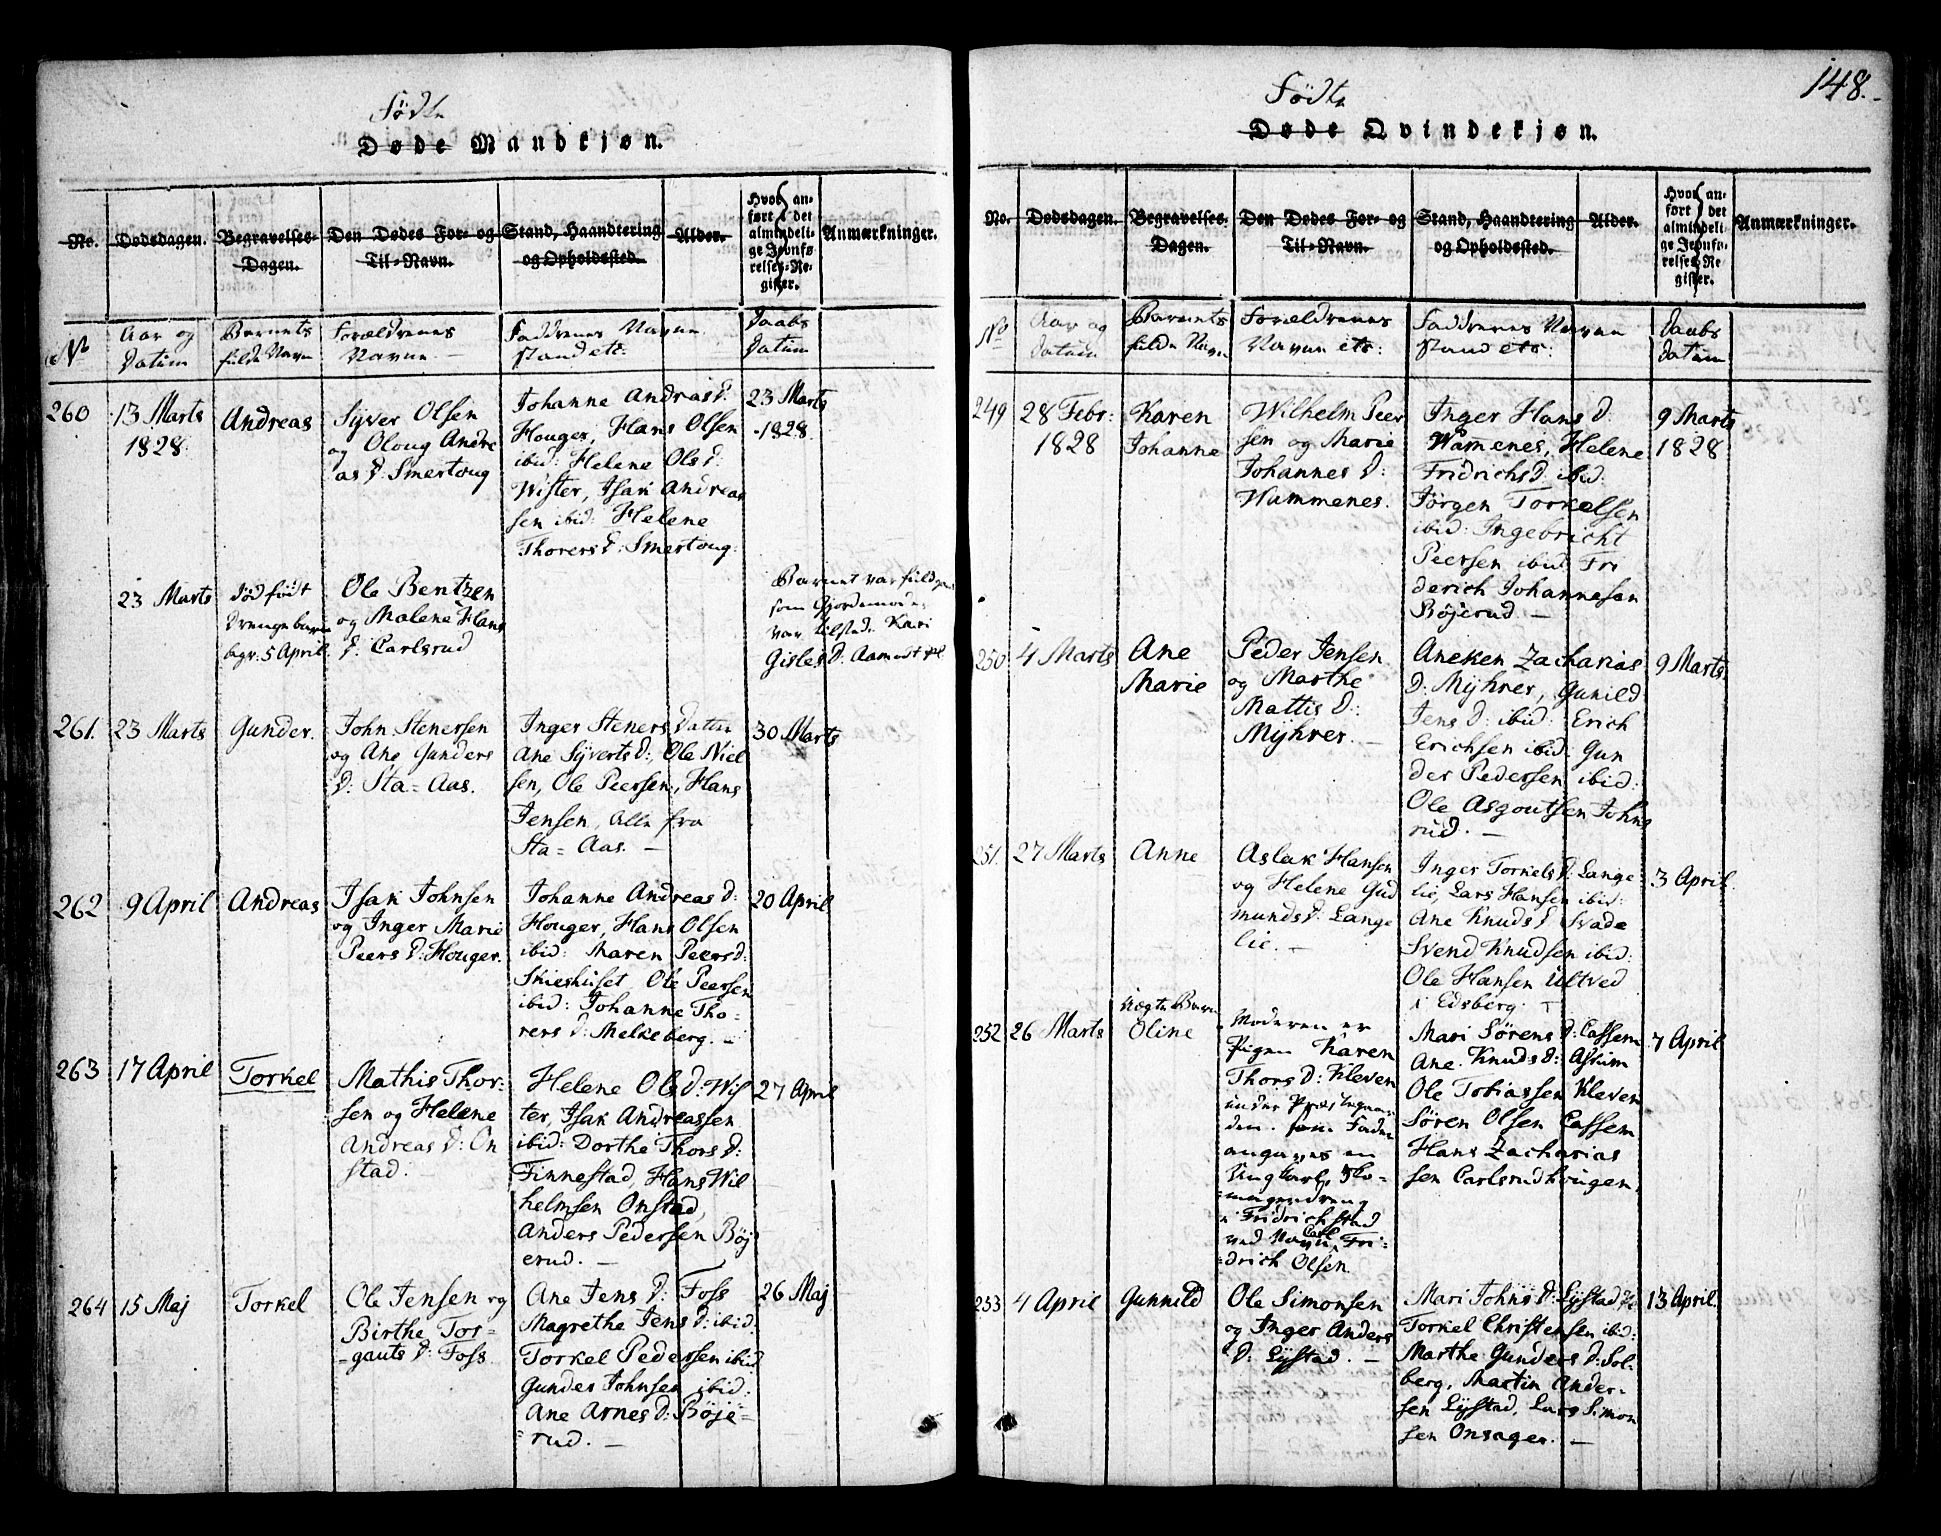 Födte
Døde Mandkjøn.
No.
Dødsdagen.
Begravelses-
Dagen.
Den Dødes For- og
Til-Navn.
Stand, Haandtering
og Opholdssted.
Alder.
Hvor an-
ført i det
almindeli-
ge Jevnfø-
relses-Re-
gister.
Anmærkninger.
No
Aar og
Datum
Barnets
fulde Navn
Forældrenes
Navne
Faddrenes Navne
Stand etc:
Daabs
Datum
260
13 Marts
1828
Andreas
Syver Olsen
og Oloug Andre
as D: Smertoug
Johanne Andreas D:
Houger, Hans Olsen
ibid: Helene Ols D:
Wister, Isak Andreas
sen ibid: Helene
Thorers D: Smertoug.
23 Marts
1828.
23 Marts
dødfødt
Drengebarn
begr. 5 April.
Ole Bentzen
og Malene Hans
D: Carlsrud
Barnet var
som Gjordemoder
var tilsted. Kari
Gisles D: Aamodt
261.
23 Marts
Gunder.
John Stenersen
og Ane Gunders
D: Sta-Aas.
Inger Steners Datter
Ane Syverts D:, Ole Niel
sen, Ole Peersen, Hans
Jensen, alle fra
Sta-Aas. —
30 Marts
262
9 April
Andreas
Isak Johnsen
og Inger Marie
Peers D: Houger.
Johanne Andreas D:
Houger, Hans Olsen
ibid: Maren Peers D:
Skieshuset, Ole Peersen
ibid: Johanne Tho-
rers D: Melkeberg. —
20 April
263
17 April
Torkel
Mathis Thor-
sen og Helene
Andreas D: On
stad.
Helene Ols D: Wis
ter, Isak Andreassen
ibid: Dorthe Thors D:
Finnestad, Hans Wil
helmsen Onstad,
Anders Pedersen Böj
erud. —
27 April
264
15 Maj
Torkel
Ole Jensen og
Birthe Tor-
gauts D: Foss.
Ane Jens D: Foss
Magrethe Jens D: ibid:
Torkel Pedersen ibid
Gunder Johnsen ibid:
Ane Arnes D: Böje-
rud. —
26 Maj
148.
Födte
Døde Qvindekjøn.
No.
Dødsdagen.
Begravelses-
Dagen.
Den Dødes For- og
Til-Navn.
Stand, Haandtering
og Opholdssted.
Alder.
Hvor an-
ført i det
almindeli-
ge Jevnfø-
relses-Re-
gister.
Anmærkninger.
No
Aar og
Datum
Barnets
fulde Navn
Forældrenes
Navne etc:
Faddrenes Navne
Stand etc:
Daabs
Datum
249
28 Febr:
1828
Karen
Johanne
Wilhelm Peer
sen og Marie
Johannes D:
Wammenes.
Inger Hans D:
Wamenes, Helene
Fridrichs D: ibid:
Jörgen Torkelsen
ibid: Ingebricht
Peersen ibid: Fri
derich Johannesen
Böjerud —
9 Marts
1828
250
4 Marts
Ane
Marie
Peder Jensen
og Marthe
Mattis D:
Myhrer. —
Aneken Zacharias
D: Myhrer, Gunild
Jens D: ibid: Erich
Erichsen ibid: Gun
der Pedersen ibid:
Ole Asgoutsen Johns
rud. —
9 Marts
251.
27 Marts
Anne
Aslak Hansen
og Helene Gud
munds D: Lange
lie. —
Inger Torkels D: Lange
lie, Lars Hansen ibid:
Ane Knuds D: Svade
Svend Knudsen ibid:
Ole Hansen Ultved
i Edsberg. —
3 April
252
26 Marts
Uægte Barn
Oline
Moderen er
Pigen Karen
Thors D: Kleven
under Præstegiæl
den. som Fader
angaves en
Ungkarl, Sko-
magerdreng
i Fridrichstad
ved Navn Carl Fri-
drich Olsen
Mari Sörens D: Cassem
Ane Knuds D: Askum
Ole Tobiassen Kleven
Sören Olsen Cassem
Hans Zacharias
sen Carlsrudhougen
7 April
253
4 April
Gunnild
Ole Simonsen
og Inger Anders
D: Lystad. —
Mari Johns D: Lystad
Torkel Christensen ibid:
Marthe Gunders D: Sol-
berg, Martin Ander-
sen Lystad, Lars Simon
sen Onsager. —
13 April.